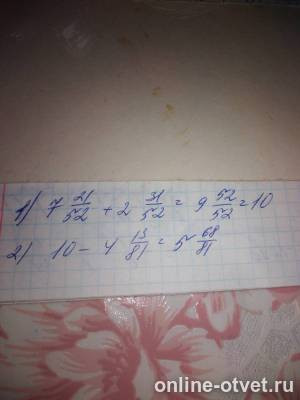 1) 7 21/52 + 2 31/52 = 9 52/52 = 10
2) 10 - 4 13/81 = 5 68/81
online-otvet.ru